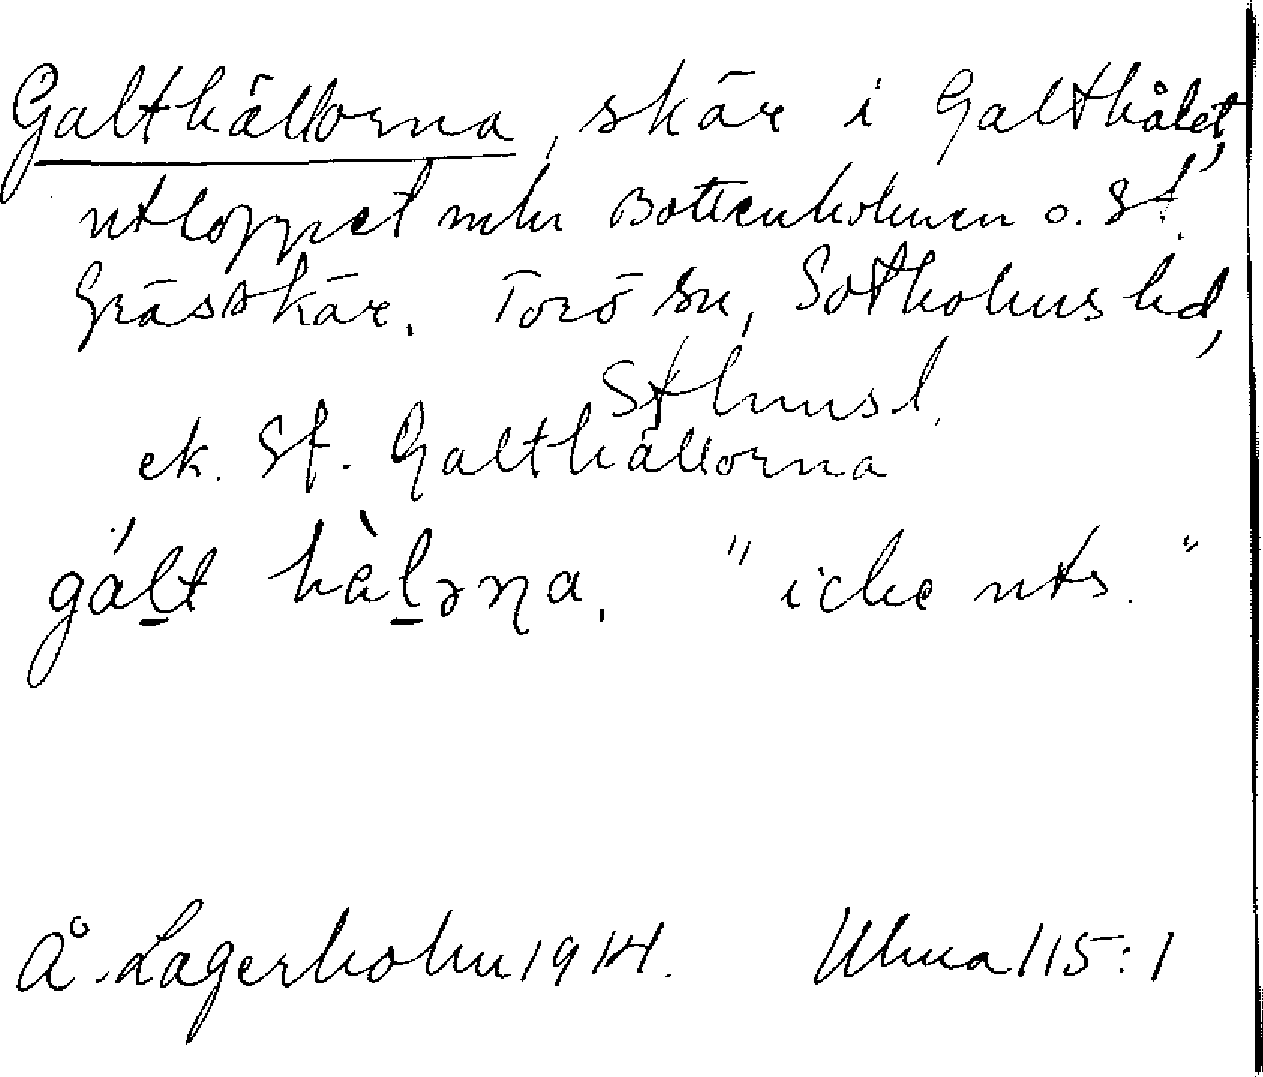 Galthällorna, skär i Galthålet,
utloppet mln Bottenholmen o. St.
Grässkär. Torö sn, Sotholms hd,
Sthmsl.
ek. Sf. Galthällorna
gált hàlɔrna. "icke uts."
Å. Lagerholm 1914. Ulma 115:1